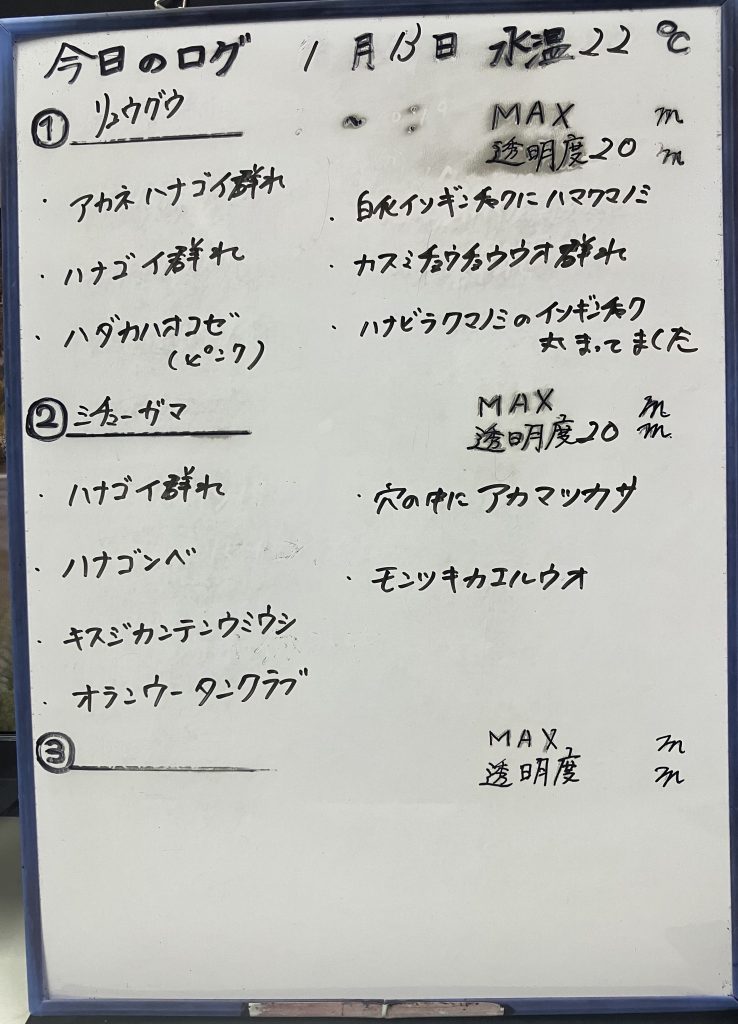 今日のログ 1月13日 水温22℃
① リュウグウ
MAX m
透明度20m
・アカネハナゴイ群れ
・ハナゴイ群れ
・ハダカハオコゼ
(ピンク)
・白化イソギンチャクにハマクマノミ
・カスミチョウチョウウオ群れ
・ハナビラクマノミのイソギンチャク
丸まってました
② ミチューガマ
MAX m
透明度20m
・ハナゴイ群れ
・ハナゴンベ
・キスジカンテンウミウシ
・オランウータンクラブ
・穴の中にアカマツカサ
・モンツキカエルウオ
③
MAX m
透明度 m